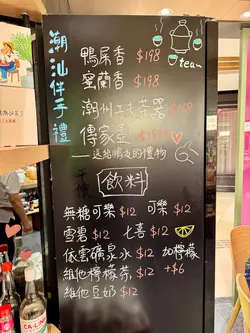 潮汕伴手禮
鴨屎香 $198
蜜蘭香 $198
tea~
潮州工夫茶器
傳家壺
——送給親友的禮物
飲料
無糖可樂 $12 可樂 $12
雪碧 $12 七喜 $12
依雲礦泉水 $12 加檸檬
維他檸檬茶 $12 +$6
維他豆奶 $12